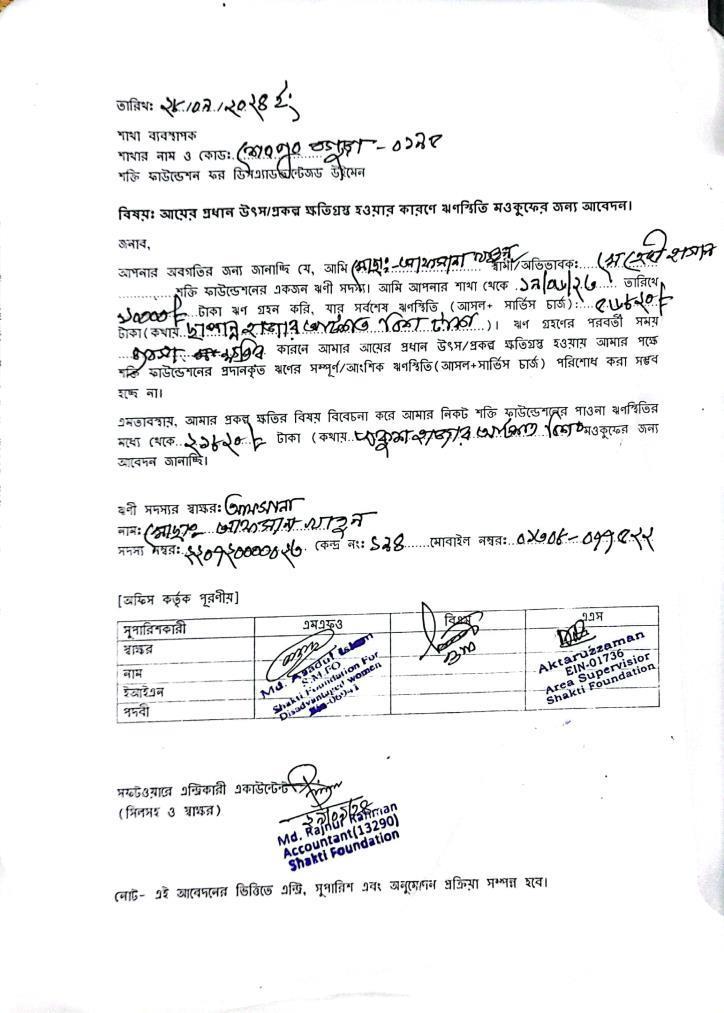 তারিখ: ২৪/০৯/২০২৪ ইং
শাখা ব্যবস্থাপক
শাখার নাম ও কোড: শেরপুর বগুড়া - ০১৯৫
শক্তি ফাউন্ডেশন ফর ডিসএ্যাডভান্টেজড উইমেন
বিষয়: আয়ের প্রধান উৎস/প্রকল্প ক্ষতিগ্রস্ত হওয়ার কারণে ঋণস্থিতি মওকুফের জন্য আবেদন।
জনাব,
আপনার অবগতির জন্য জানাচ্ছি যে, আমি মোছাঃ স্বামী/অভিভাবক: মেহেদী হাসান
শক্তি ফাউন্ডেশনের একজন ঋণী সদস্য। আমি আপনার শাখা থেকে তারিখে
টাকা ঋণ গ্রহন করি, যার সর্বশেষ ঋণস্থিতি (আসল+ সার্ভিস চার্জ):
টাকা (কথায় হাজার আটশত বিশ টাকা)। ঋণ গ্রহণের পরবর্তী সময়
কারনে আমার আয়ের প্রধান উৎস/প্রকল্প ক্ষতিগ্রস্ত হওয়ায় আমার পক্ষে
শক্তি ফাউন্ডেশনের প্রদানকৃত ঋণের সম্পূর্ণ/আংশিক ঋণস্থিতি(আসল+সার্ভিস চার্জ) পরিশোধ করা সম্ভব
হচ্ছে না।
এমতাবস্থায়, আমার প্রকল্প ক্ষতির বিষয় বিবেচনা করে আমার নিকট শক্তি ফাউন্ডেশনের পাওনা ঋণস্থিতির
মধ্যে থেকে ২১৮২০/- টাকা (কথায় একুশ হাজার আটশত বিশ মওকুফের জন্য
আবেদন জানাচ্ছি।
ঋণী সদস্যর স্বাক্ষর: আফসানা
নাম: মোছাঃ আফসানা খাতুন
সদস্য নম্বর: কেন্দ্র নং: ১২৪ মোবাইল নম্বর:
[অফিস কর্তৃক পূরণীয়]
সুপারিশকারী এমএফও বিএম এএস
স্বাক্ষর
নাম
ইআইএন
পদবী
Md. Asadul Islam
S.MFO
Shakti Foundation For
Disadvantaged women
Aktaruzzaman
EIN-01736
Area Supervisior
Shakti Foundation
সফটওয়ারে এন্ট্রিকারী একাউন্টেন্ট
(সিলসহ ও স্বাক্ষর)
Md. Rajnur Rahman
Accountant(13290)
Shakti Foundation
নোট- এই আবেদনের ভিত্তিতে এন্ট্রি, সুপারিশ এবং অনুমোদন প্রক্রিয়া সম্পন্ন হবে।